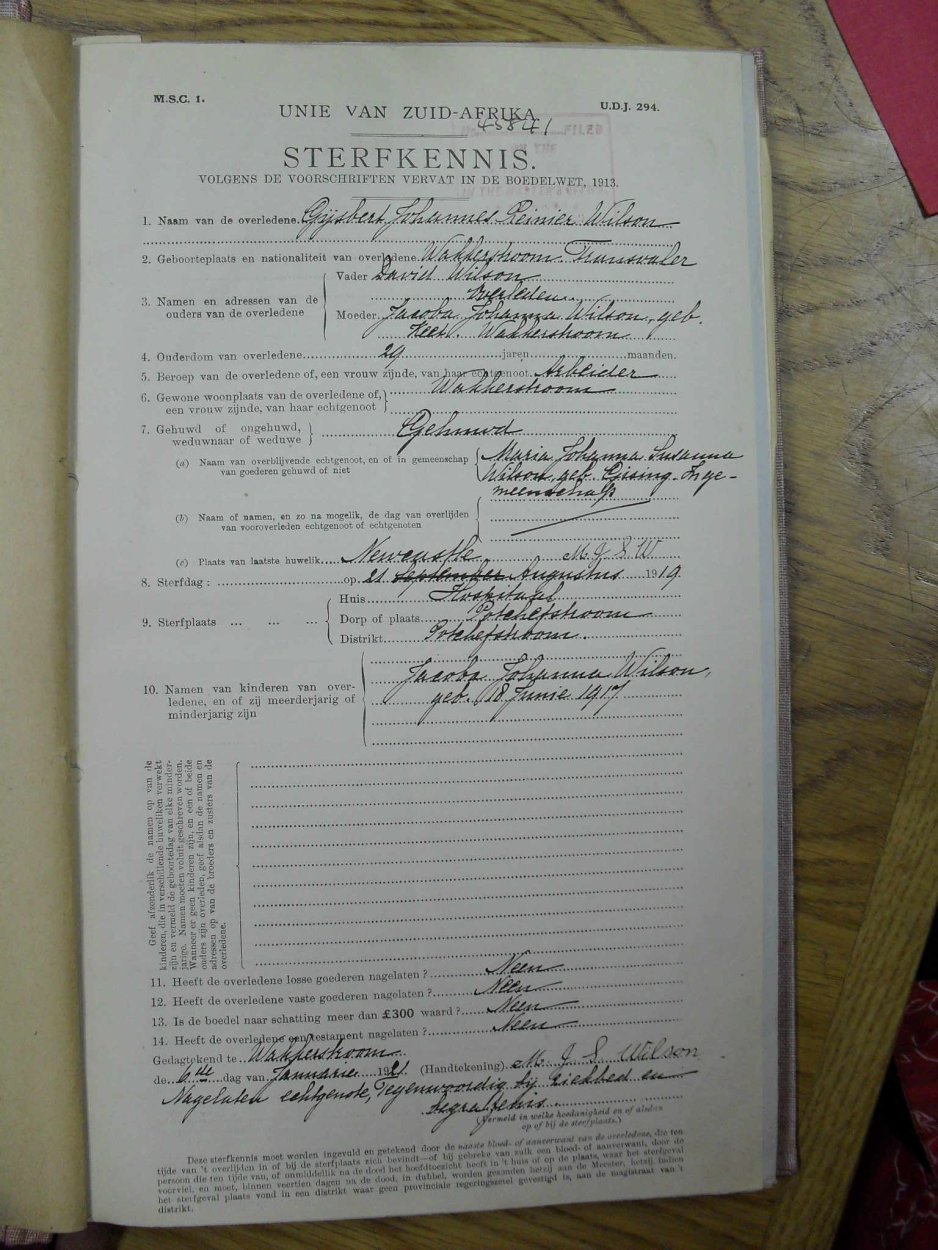 M.S.C. 1.
U.D.J. 294.
UNIE VAN ZUID-AFRIKA
45841
FILED
STERFKENNIS.
VOLGENS DE VOORSCHRIFTEN VERVAT IN DE BOEDELWET, 1913.
1. Naam van de overledene Gijsbert Johannes Reinier Wilson
2. Geboorteplaats en nationaliteit van overledene Wakkerstroom. Transvaler
3. Namen en adressen van de ouders van de overledene
Vader David Wilson
Overleden
Moeder Jacoba Johanna Wilson, geb.
Wakkerstroom
4. Ouderdom van overledene 29 jaren maanden.
5. Beroep van de overledene of, een vrouw zijnde, van haar echtgenoot. Arbeider
6. Gewone woonplaats van de overledene of, een vrouw zijnde, van haar echtgenoot
Wakkerstroom
7. Gehuwd of ongehuwd, weduwnaar of weduwe
Gehuwd
(a) Naam van overblijvende echtgenoot, en of in gemeenschap van goederen gehuwd of niet
Maria Johanna Susanna
Wilson, geb. Gising. In ge-
meenschap
(b) Naam of namen, en zo na mogelik, de dag van overlijden van vooroverleden echtgenoot of echtgenoten
(c) Plaats van laatste huwelik Newcastle. M. J. S. W
8. Sterfdag : op 21 September Augustus 1919
9. Sterfplaats ... ... ...
Huis Hospitaal
Dorp of plaats Potchefstroom
Distrikt Potchefstroom.
10. Namen van kinderen van over-
ledene, en of zij meerderjarig of
minderjarig zijn
Jacoba Johanna Wilson,
geb. 18 Junie 1917
Geef afzonderlik de namen op van de
kinderen, die in verschillende huweliken verwekt
zijn en vermeld de geboortedag van elke minder-
jarige. Namen moeten voluit geschreven worden.
Wanneer er geen kinderen zijn, en een of beide
ouders zijn overleden, geef alsdan de namen en
adressen op van de broeders en zusters van de
overledene.
11. Heeft de overledene losse goederen nagelaten ? Neen
12. Heeft de overledene vaste goederen nagelaten ? Neen
13. Is de boedel naar schatting meer dan £300 waard ? Neen
14. Heeft de overledene een testament nagelaten ? Neen
Gedagtekend te Wakkerstroom
de 6de dag van Januarie 1921 (Handtekening) M. J. S. Wilson
Nagelaten echtgenote, Tegenwoordig bij Ziekbed en
begrafenis
(Vermeld in welke hoedanigheid en of alsdan
op of bij de sterfplaats.)
Deze sterfkennis moet worden ingevuld en getekend door de naaste bloed- of aanverwant van de overledene, die ten
tijde van 't overlijden in of bij de sterfplaats zich bevindt—of bij gebreke van zulk een bloed- of aanverwant, door de
persoon die ten tijde van, of onmiddellik na de dood het hoofdtoezicht heeft in 't huis of op de plaats, waar het sterfgeval
voorviel, en moet, binnen veertien dagen na de dood, in dubbel, worden gezonden hetzij aan de Meester, hetzij, indien
het sterfgeval plaats vond in een distrikt waar geen provinciale regeringszetel gevestigd is, aan de magistraat van 't
distrikt.